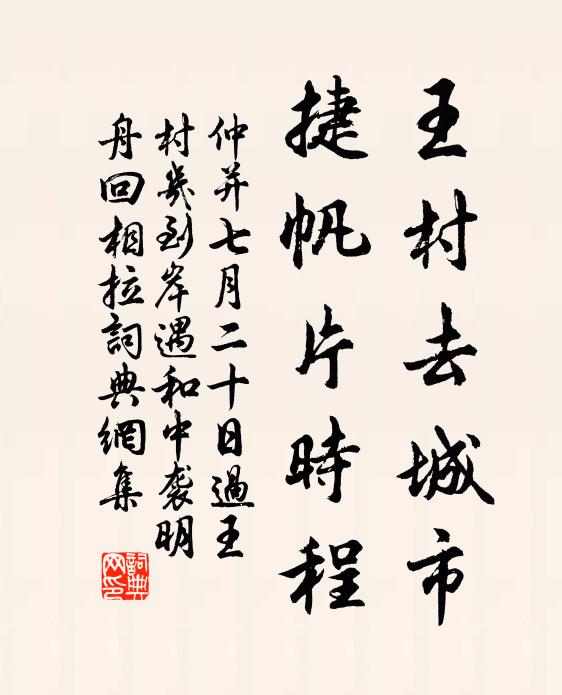 王村去城市
捷帆片時程
仲并七月二十日過王
村幾到岸遇和中襲明
舟回相拉詞典網集
詞典
网印